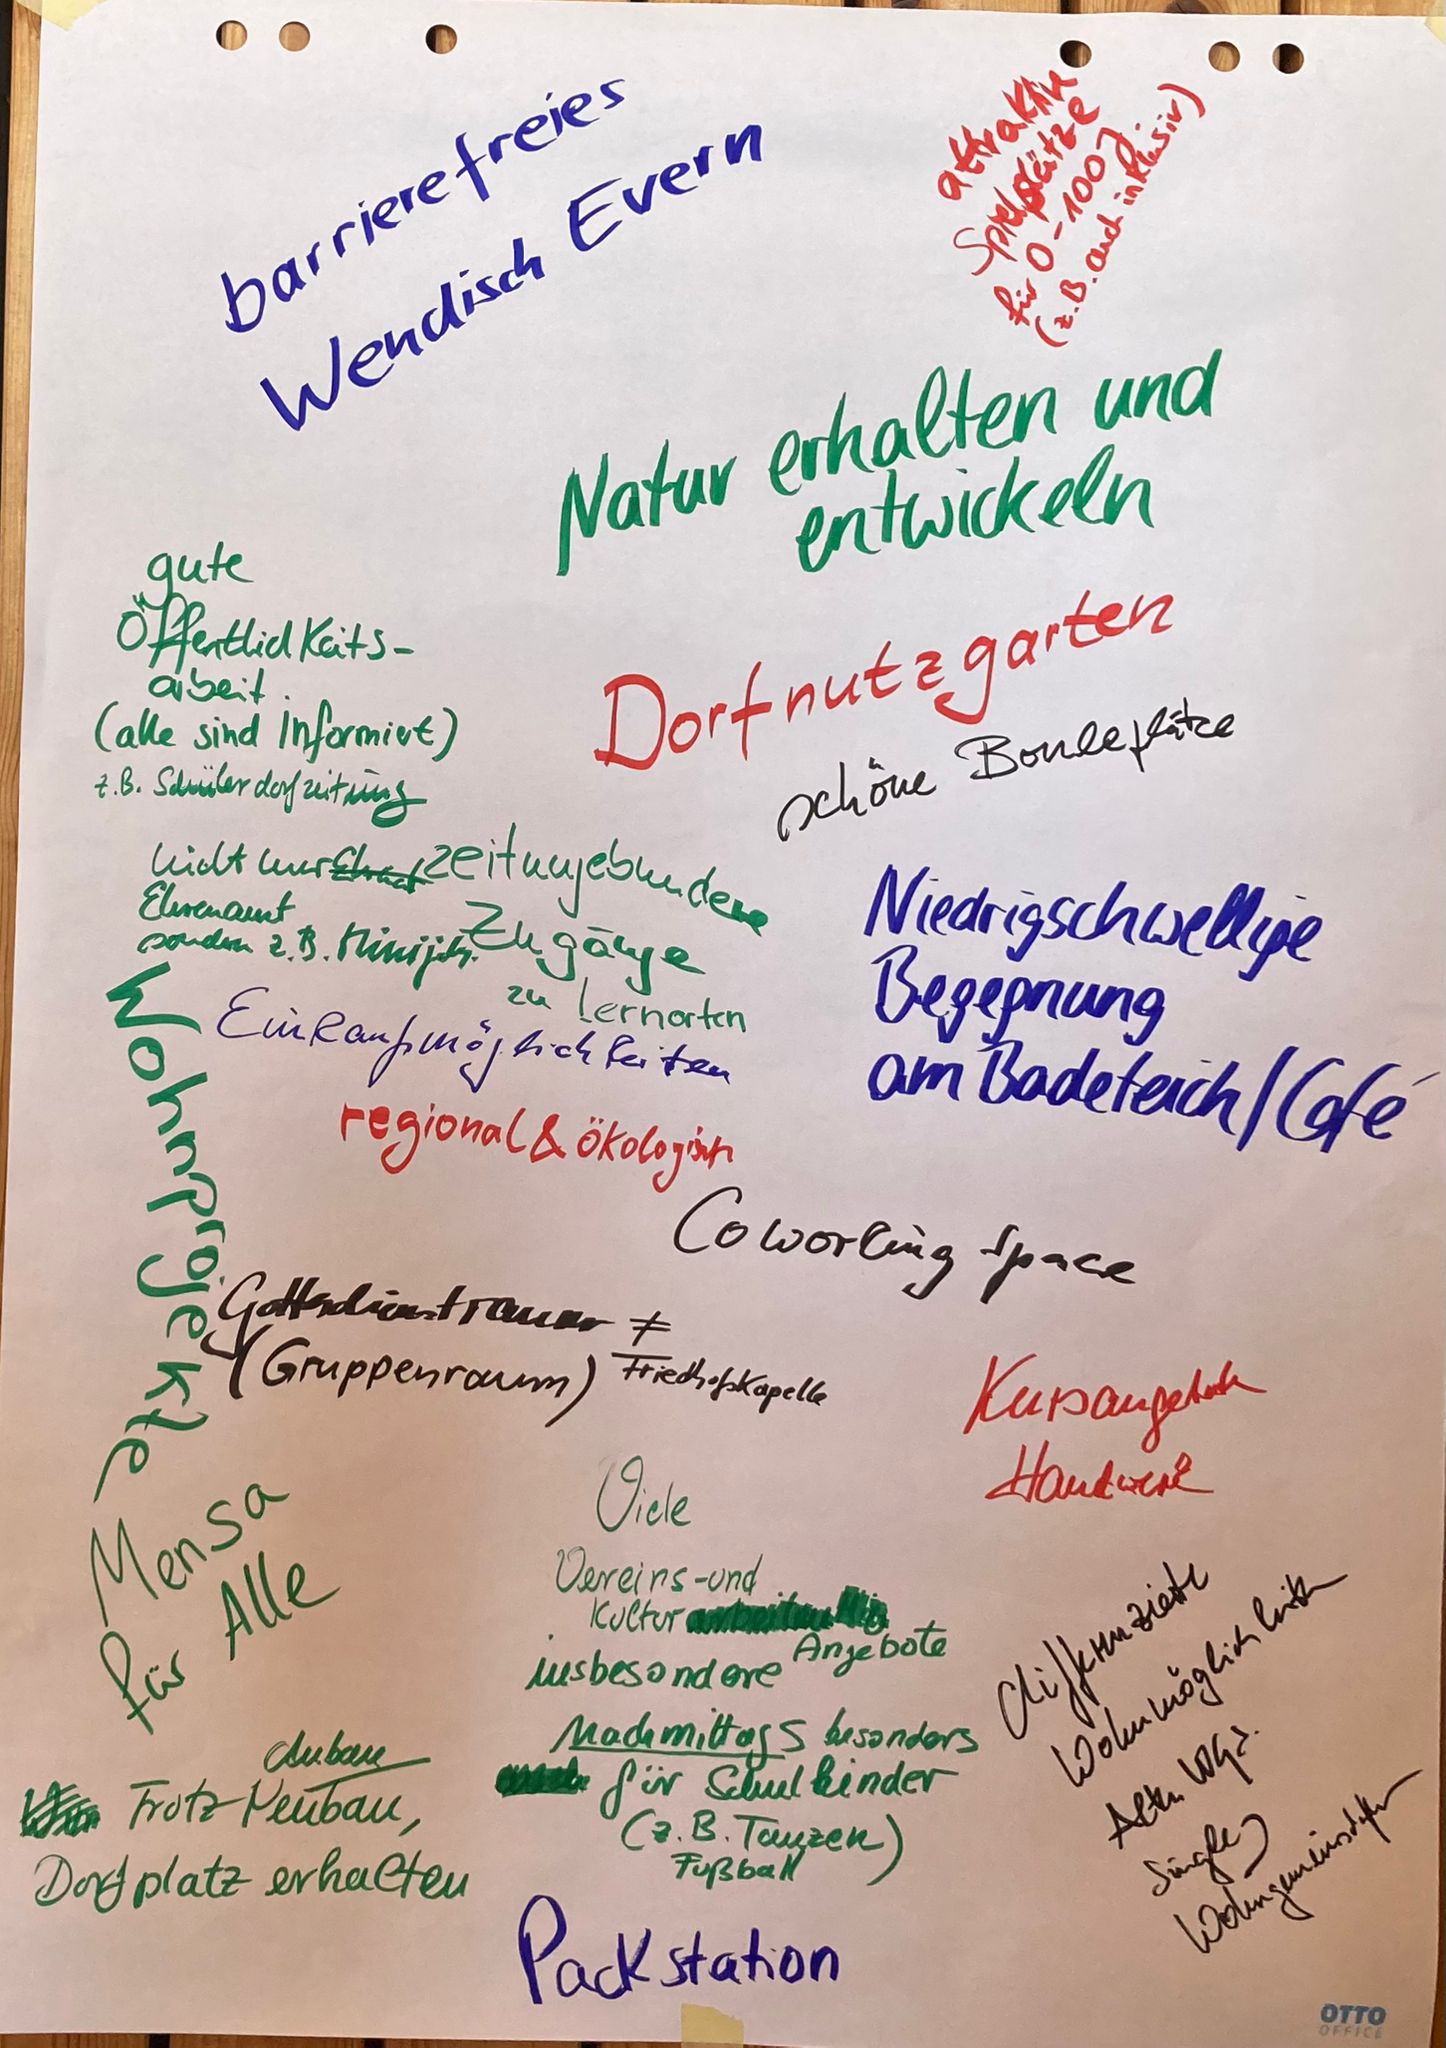 barrierefreies
Wendisch Evern
attraktive
Spielplätze
für 0-100J
(z.B. auch inklusiv)
Natur erhalten und
entwickeln
gute
Öffentlichkeits-
arbeit.
(alle sind informiert)
z.B. Schülerdorfzeitung
Dorfnutzgarten
schöne Bouleplätze
nicht nur
Ehrenamt
sondern z.B. Minijob.
zeitungebundene
Zugänge
zu Lernorten
Niedrigschwellige
Begegnung
am Badeteich/Café
Wohnprojekte
Einkaufsmöglichkeiten
regional & ökologisch
Coworking Space
Gottesdienstraum ≠
(Gruppenraum) Friedhofskapelle
Kursangebote
Handwerk
Mensa
für Alle
Viele
Vereins-und
Kultur
Angebote
insbesondere
Nachmittags besonders
für Schulkinder
(z.B. Tanzen)
Fußball
differenzierte
Wohnmöglichkeiten
Alten WGs.
Singles
Wohngemeinschaften
Anbau
Trotz Neubau,
Dorfplatz erhalten
Packstation
OTTO
OFFICE